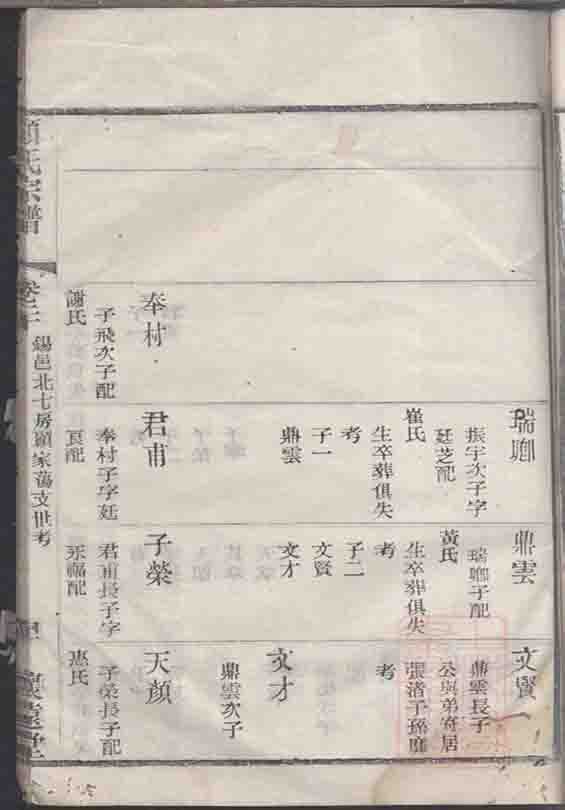 瑞卿
振宇次子字
廷芝配
崔氏
生卒葬俱失
考
子一
鼎雲
鼎雲
瑞卿子配
黃氏
生卒葬俱失
考
子二
文賢
文才
文賢
鼎雲長子
公與弟寄居
張渚子孫
考
文才
鼎雲次子
奉村
子飛次子配
謝氏
君甫
奉村子字廷
配
子榮
君甫長子字
永福配
天顏
子榮長子配
惠氏
顧氏宗譜
卷二
錫邑北七房顧家蕩支世考